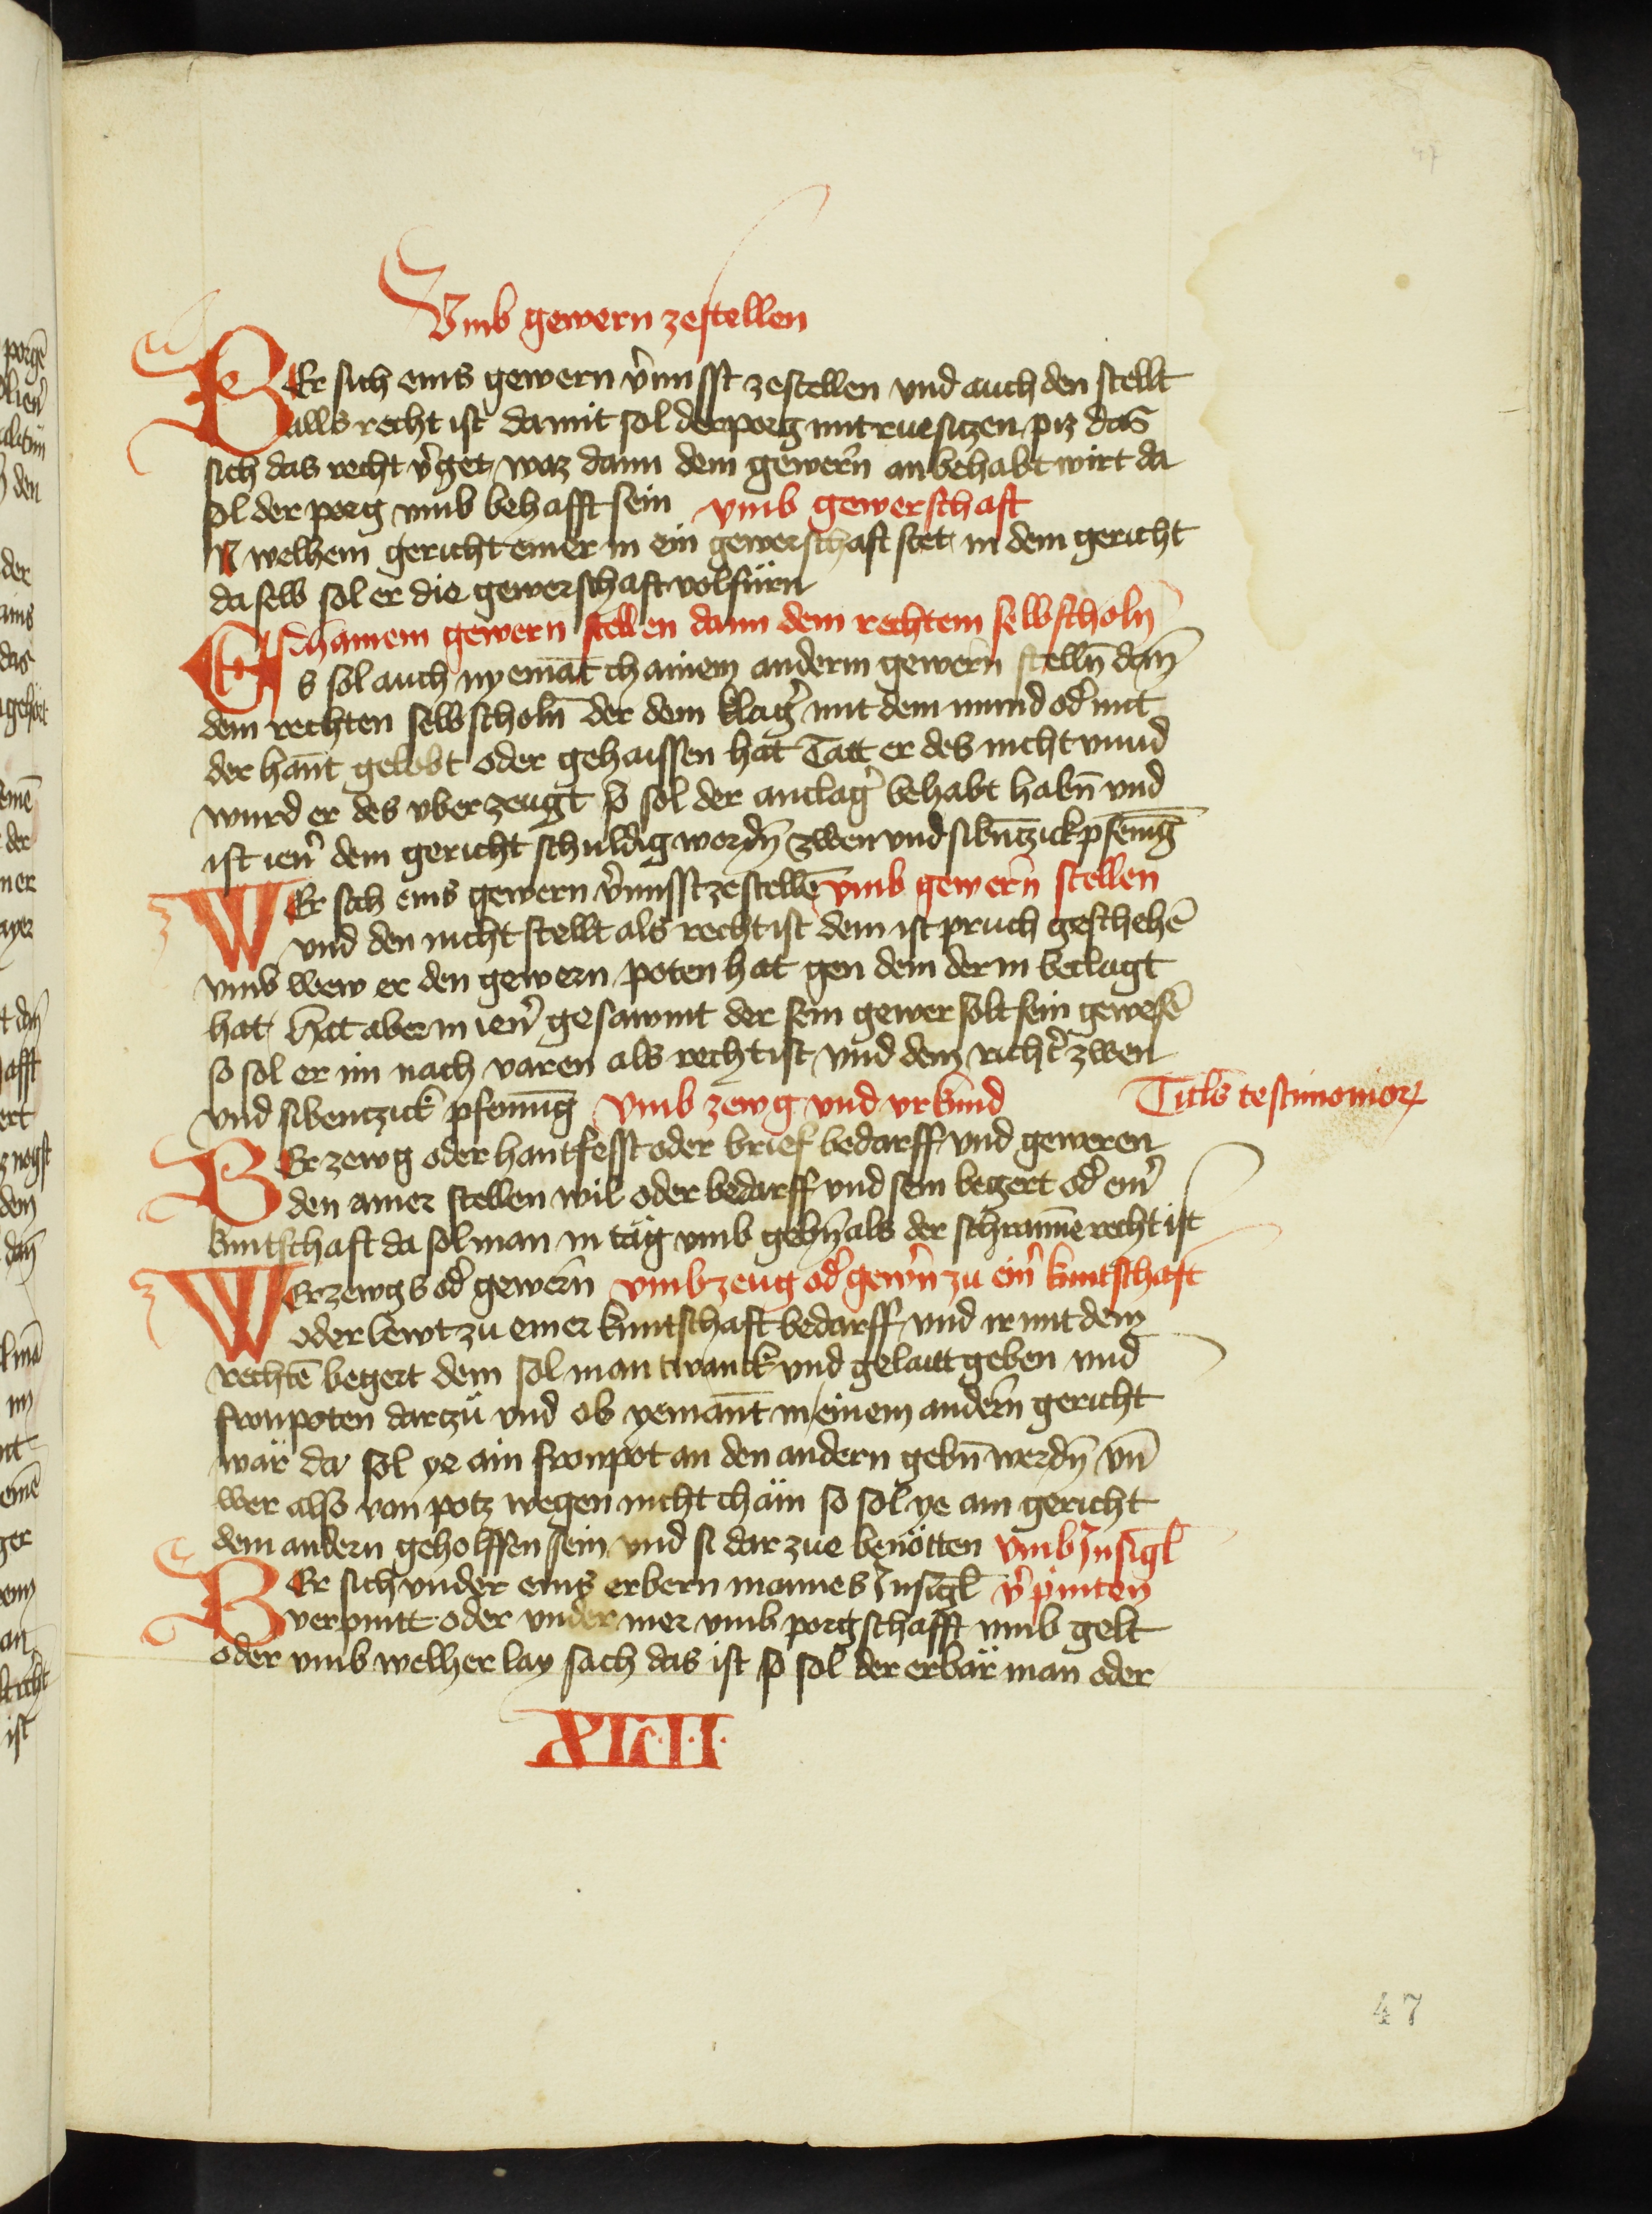 47
Vmb gewern zestellen
WEr sich eins gewern v̾misst zestellen vnd auch den stellt
alls recht ist damit sol der porg mit rue sitzen piz das
sich das recht v̾get waz dann dem gewern an behabt wirt da
sol der porg vmb behafft sein vmb gewerschaft
IN welhem gericht einer in ein gewerschaft stet in dem gericht
da selb sol er die gewerschaft volfürn
chainem gewern stellen dann dem rechtem selbscholn̄
Es sol auch nyemāt chainem anderm gewern stelln̄ dan̄
dem rechten selbscholn̄ der dem klag̾ mit dem mund od̾ mit
der hant gelobt oder gehaissen hat Tatt er des nicht vnnd
wurd er des vberzeugt so sol der anclag̾ behabt habn̄ vnd
ist ien̾ dem gericht schuldig wordn̄ zwen vnd sibn̄tzick pfenīg
WEr sich eins gewern v̾misst zestellē vmb gewern stellen
vnd den nicht stellt als recht ist dem ist pruch geschehē
vmb wew er den gewern poten hat gen dem der in beclagt
hat Hat aber in ien̾ gesawmt der sein gewer solt sein gewesē
so sol er im nach varen als recht ist vnd dem richt̾ zwen
vnd sibentzick pfenning vmb zewg vnd vrkund
Titl̄s testimonioꝝ
WEr zewg oder hantfesst oder brief bedarff vnd geweren
den ainer stellen wil oder bedarff vnd sein begert od̾ ein̾
kuntschaft da sol man in täg vmb gebn̄ als der schrannē recht ist
WEr zewgs od̾ gewern vmb zeug od̾ gew̾n zu ein̾ kuntschaft
oder lewt zu einer kuntschaft bedarff vnd ir mit dem
rechtē begert dem sol man twanck vnd gelaitt geben vnd
fronpoten dartzů vnd ob yemant in einem andern gericht
wär da sol ye ain fronpot an den andern gebn̄ werdn̄ vn̄
wer also von potz wegen nicht chäm so sol ye ain gericht
dem andern geholffen sein vnd si dar zue benötten vmb Insigl̄
WEr sich vnder eins erbern mannes Insigl̄ v̾pinten
verpintt oder vnder mer vmb porgschafft vmb gelt
oder vmb welher lay sach das ist so sol der erbär man oder
XLII
47